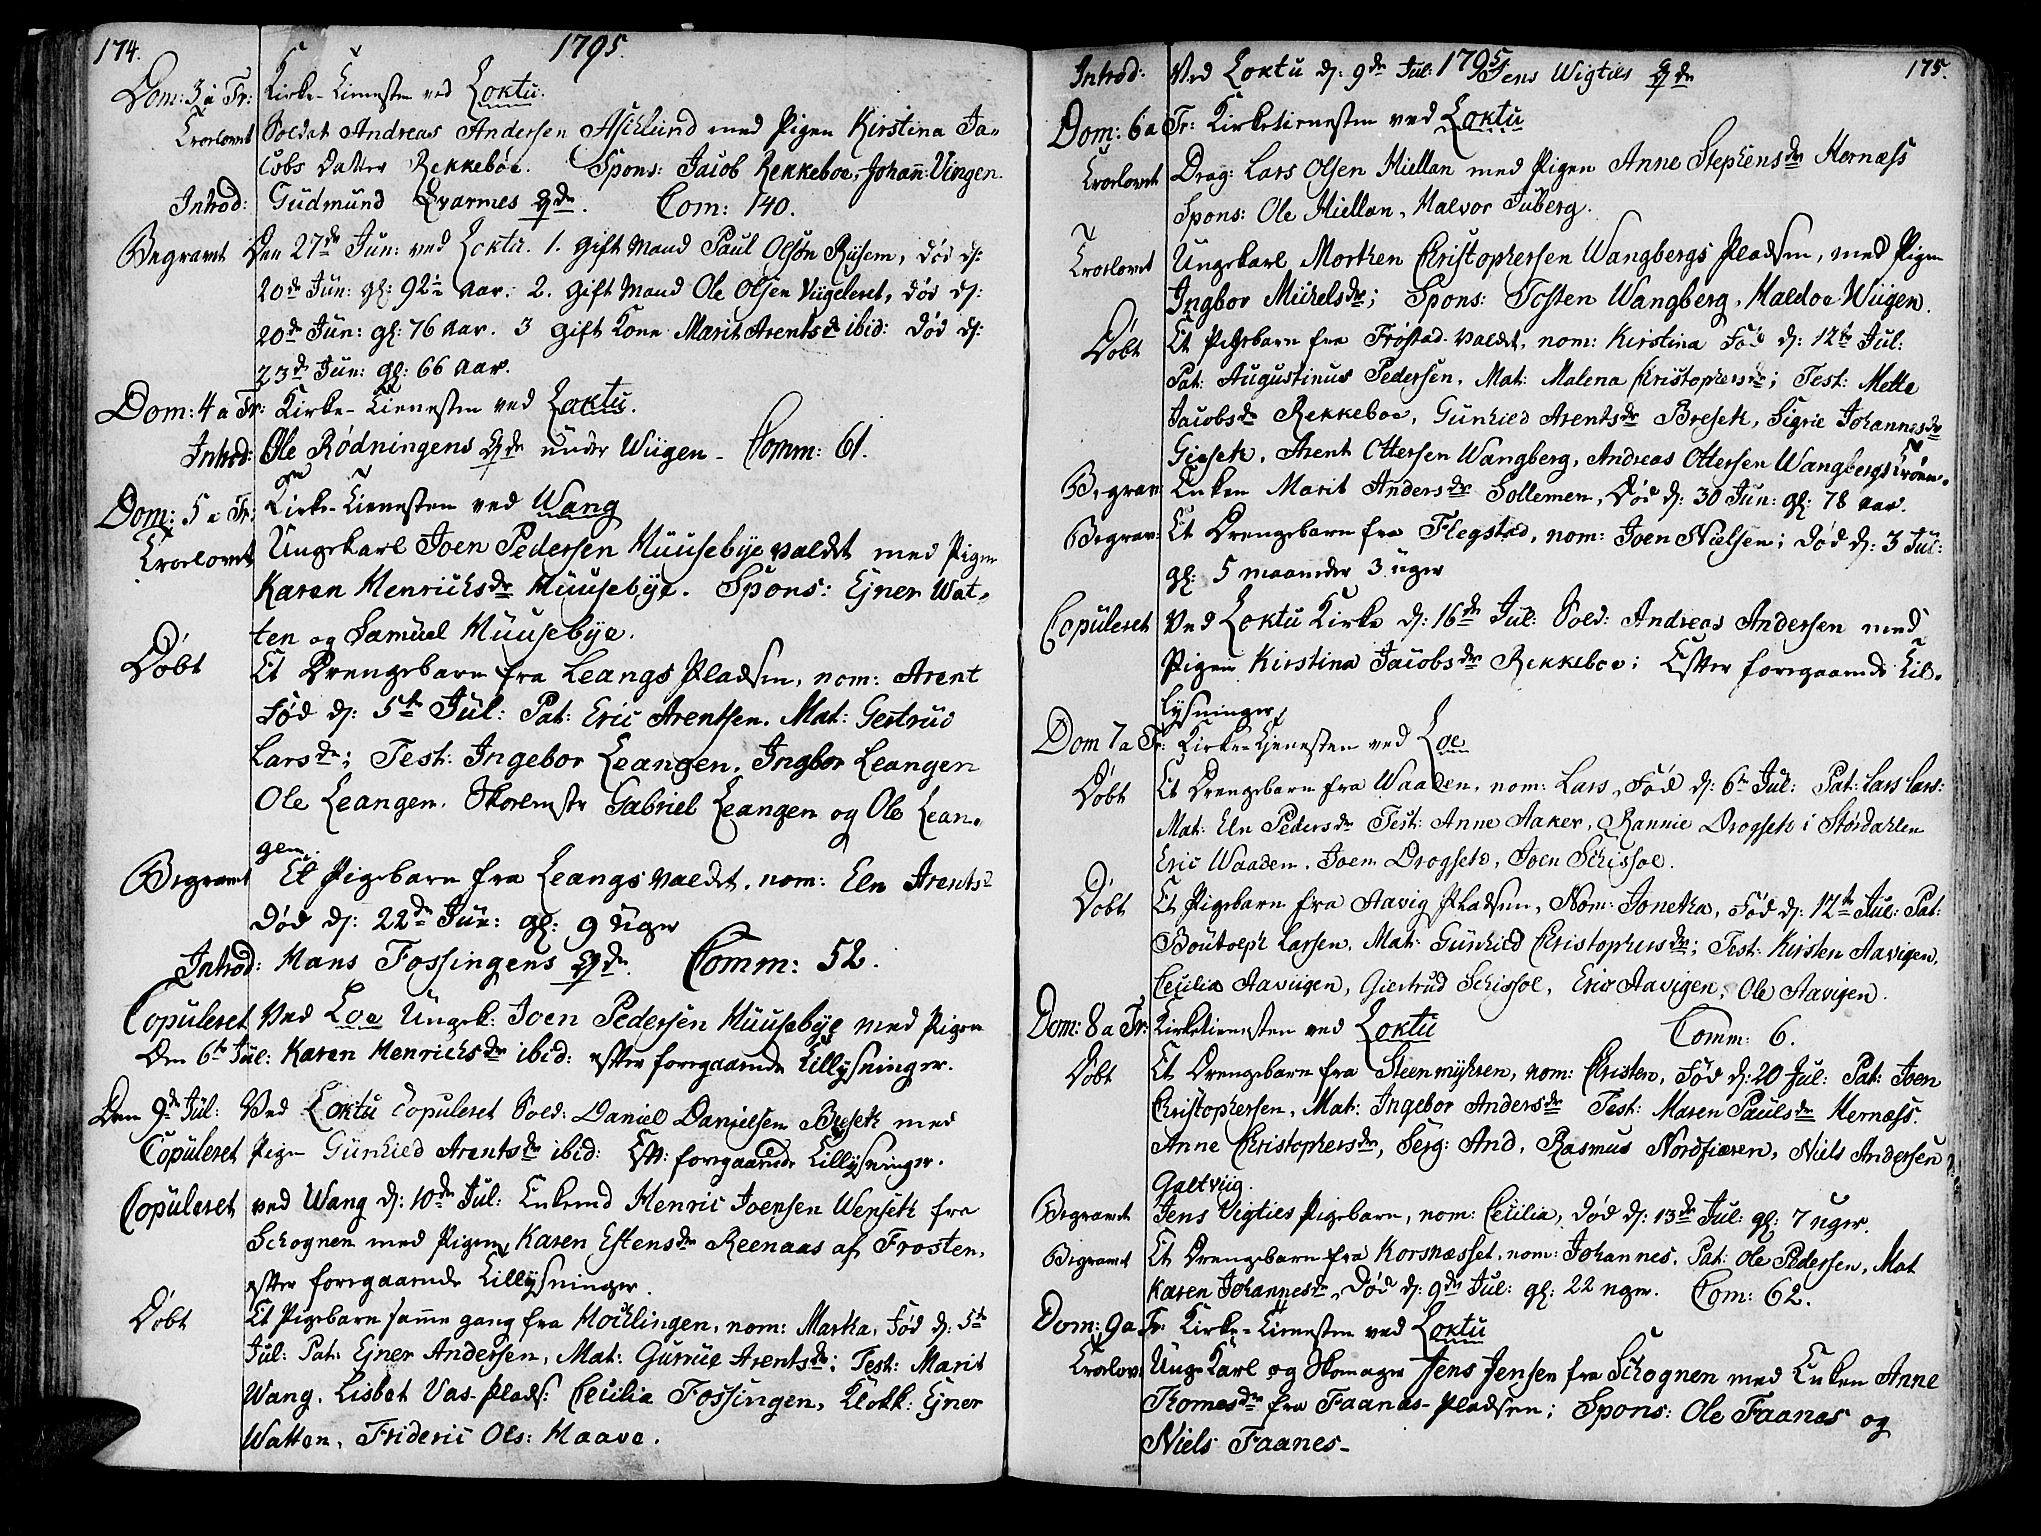 174. 1795.
Dom: 3 a Tr: Kirke-Tienesten ved Loktu.
Trorlovet Soldat Andreas Andersen Aschlund med Pigen Kirstina Ja-
cobs Datter Rekkeboe. Spons: Jacob Rekkeboe, Johan: Vingen.
Introd: Gudmund Evarmes Qde. Com: 140.
Begravet Den 27de Jun: ved Loktu. 1. gift Mand Paul Olsøn Rusem, død d:
20de Jun: gl: 92 aar. 2. Gift Mand Ole Olsen Viigeleret, død d:
20de Jun: gl: 76 aar. 3 gift Kone Marit Arentsdr ibid: død d:
23de Jun: gl: 66 aar.
Dom: 4 a Tr: Kirke-Tienesten ved Loktu.
Introd: Ole Rødningens Qde under Wiigen - Comm: 61.
Dom: 5 a Tr: Kirke-Tienesten ved Wang
Trorlovet Ungekarl Joen Pedersen Muusebye valdet med Pigen
Karen Henrichsdr Muusebye. Spons: Ejner Wat-
ten og Samuel Muusebye.
Døbt Et Drengebarn fra Leangs Pladsen, nom: Arent
Fød d: 5te Jul: Pat: Eric Arentsen. Mat: Gertrud
Larsdr; Test: Ingebor Leangen. Ingbor Leangen
Ole Leangen. Skolemstr Gabriel Leangen og Ole Lean-
gen.
Begravet Et Pigebarn fra Leangs valdet, nom: Eln Arentsdr
Død d: 22de Jun: gl: 9 uger
Introd: Hans Fossingens Qde. Comm: 52.
Copuleret Ved Loe Ungek: Joen Pedersen Muusebye med Pigen
Den 6te Jul: Karen Henrichsdr ibid: efter foregaaende Tillysninger.
Den 9de Jul: Ved Loktu Copuleret Sold: Daniel Danielsen Breseth med
Copuleret Pigen Gunhild Arentsdr ibid: Eft: foregaaende Tillysninger.
Copuleret ved Wang d: 10de Jul: Enkemd Henric Joensen Wenseth fra
Schognen med Pigen Karen Estensdr Reenaas af Frosten,
efter foregaaende Tillysninger.
Døbt Et Pigebarn samme gang fra Hochlingen, nom: Martha, Fød d: 5te
Jul: Pat: Ejner Andersen, Mat: Gurrue Arentsdr; Test: Marit
Wang, Lisbet Vas-Plads: Cecilia Fossingen, Klokk: Ejner
Watten, Frideric Ols: Haave.
175. 1795
Introd: Ved Loktu d: 9de Jul: Jens Wigties Qde
Dom: 6 a Tr: Kirketienesten ved Loktu
Trorlovet Drag: Lars Olsen Hiellan med Pigen Anne Stephensdr Hernæss
Spons: Ole Hiellan, Halvor Juberg.
Trorlovet Ungekarl Morthen Christophersen Wangbergs Pladsen, med Pigen
Ingbor Michelsdr; Spons: Tosten Wangberg, Haldoe Wiigen.
Døbt Et Pigebarn fra Frøstad-valdet, nom: Kirstina Fød d: 12te Jul:
Pat: Augustinus Pedersen, Mat: Malena Christophersdr; Test: Mette
Jacobsdr Rekkeboe, Gunhild Arentsdr Breseth, Sigrie Johannesdr
Gieseth, Arent Ottersen Wangberg, Andreas Ottersen Wangbergs
Begrav: Enken Marit Andersdr Sollemen, Død d: 30 Jun: gl: 78 aar.
Begrav: Et Drengebarn fra Flegstad, nom: Joen Nielsen; død d: 3 Jul:
gl: 5 maaneder 3 uger
Copuleret Ved Loktu Kirke d: 16de Jul: Sold: Andreas Andersen med
Pigen Kirstina Jacobsdr Rekkeboe; Efter foregaaende Til-
lysninger,
Dom 7 a Tr: Kirke-Tjenesten ved Loe
Døbt Et Drengebarn fra Waaden, nom: Lars, Fød d: 6te Jul: Pat: Lars Lars:
Mat: Eln Pedersdr Test: Anne Aaker, Rannie Drogseth i Størdahlen
Eric Waaden, Joen Drogseth, Joen Schissoe.
Døbt Et Pigebarn fra Aavig Pladsen, Nom: Jonetha, Fød d: 12te Jul: Pat:
Boutolph Larsen, Mat: Gunhild Christophersdr; Test: Kirsten Aavigen,
Cecilia Aaviigen, Giertrud Schissoe, Eric Aavigen, Ole Aavigen.
Dom: 8 a Tr: Kirketienesten ved Loktu Comm: 6.
Døbt Et Drengebarn fra Steenmyhren, nom: Christen, Fød d: 20 Jul: Pat: Joen
Christophersen, Mat: Ingebor Andersdr Test: Maren Paulsdr Hernæss.
Anne Christophersdr, Serg: And. Rasmus Nordfiæren, Niels Andersen
Galtviig.
Begravet Jens Vigties Pigebarn, nom: Cecilia, død d: 13de Jul: gl: 7 uger.
Begravet Et Drengebarn fra Korsnæsset, nom: Johannes, Pat: Ole Pedersen, Mat
Karen Johannesdr, Død d: 9de Jul: gl: 22 uger. Com: 62.
Dom: 9 a Tr: Kirke-Tienesten ved Loktu
Trorlov: Unge Karl og Skomager Jens Jensen fra Schognen med Enken Anne
Thomesdr fra Faanes-Pladsen; Spons: Ole Faanes og
Niels Faanes-